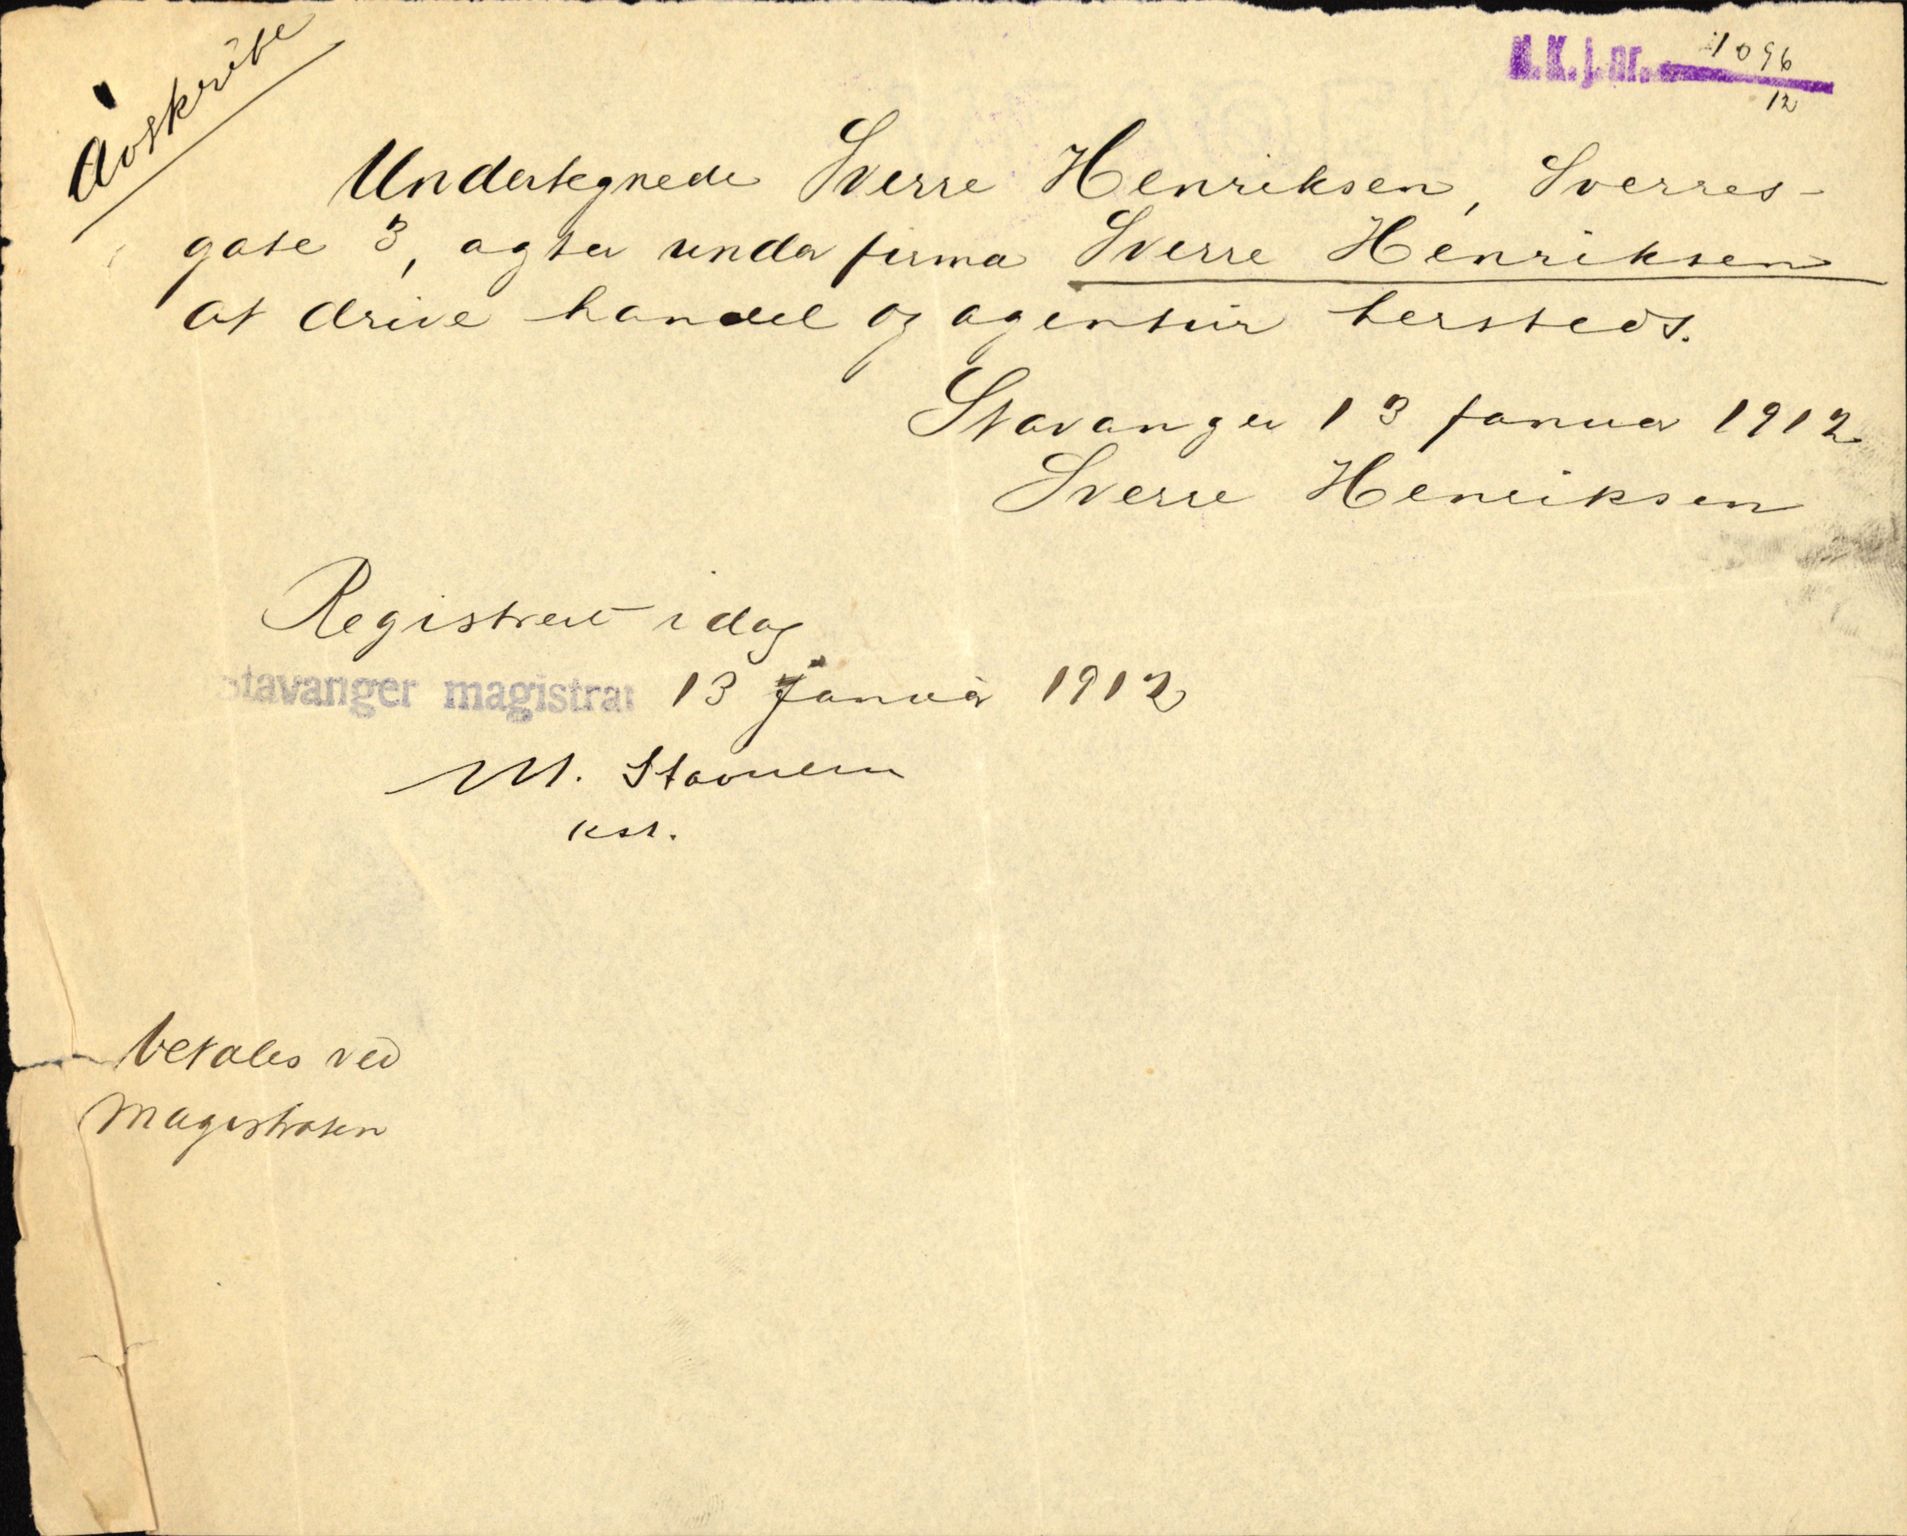 Avskrift
N.K.j.nr. 1096
12
Undertegnede Sverre Henriksen, Sverres-
gate 3, agter under firma Sverre Henriksen
at drive handel og agentur hersteds.
Stavanger 13 januar 1912
Sverre Henriksen
Registrert idag
Stavanger magistrat 13 januar 1912
M. Stavnem
kst.
betales ved
Magistraten